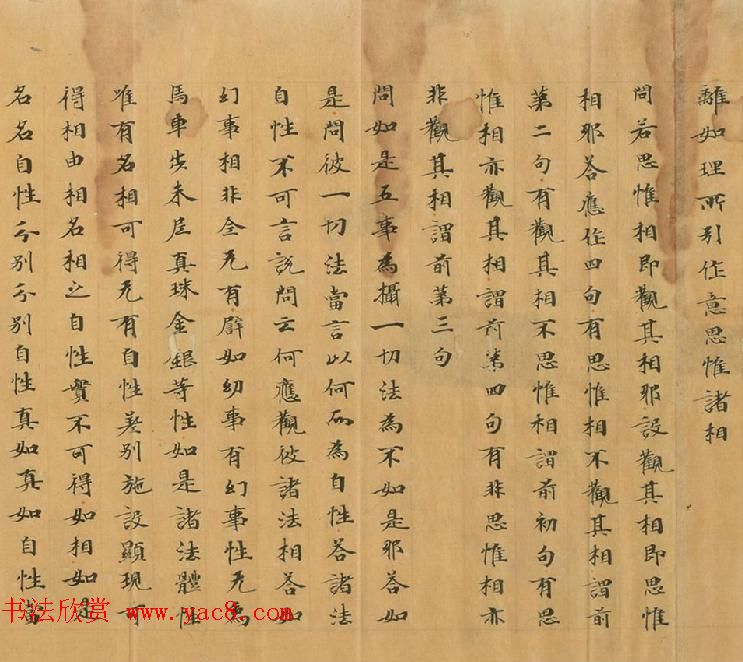 離如理所引作意思惟諸相
問若思惟相即觀其相耶設觀其相即思惟
相耶荅應作四句有思惟相不觀其相謂前
第二句有觀其相不思惟相謂前初句有思
惟相亦觀其相謂前第四句有非思惟相亦
非觀其相謂前第三句
問如是五事為攝一切法為不如是耶荅如
是問彼一切法當言以何而為自性荅諸法
自性不可言說問云何應觀彼諸法相荅如
幻事相非全无有譬如幻事有幻事性无為
馬車步末尼真珠金銀等性如是諸法體性
唯有名相可得无有自性差別施設顯現可
得相由相名相之自性實不可得如相如是
名名自性分別分別自性真如真如自性當
书法欣赏 www.yac8.com